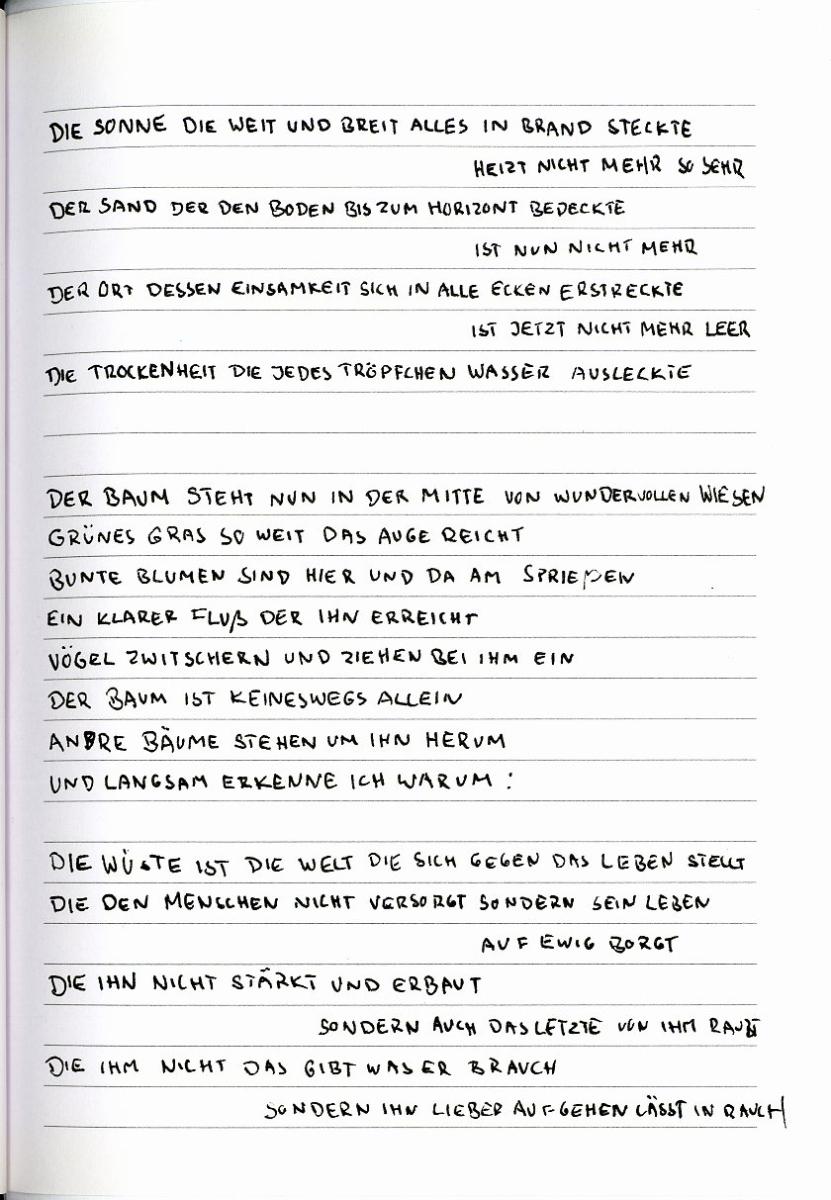 DIE SONNE DIE WEIT UND BREIT ALLES IN BRAND STECKTE
HEIZT NICHT MEHR SO SEHR
DER SAND DER DEN BODEN BIS ZUM HORIZONT BEDECKTE
IST NUN NICHT MEHR
DER ORT DESSEN EINSAMKEIT SICH IN ALLE ECKEN ERSTRECKTE
IST JETZT NICHT MEHR LEER
DIE TROCKENHEIT DIE JEDES TRÖPFCHEN WASSER AUSLECKTE
DER BAUM STEHT NUN IN DER MITTE VON WUNDERVOLLEN WIESEN
GRÜNES GRAS SO WEIT DAS AUGE REICHT
BUNTE BLUMEN SIND HIER UND DA AM SPRIEßEN
EIN KLARER FLUß DER IHN ERREICHT
VÖGEL ZWITSCHERN UND ZIEHEN BEI IHM EIN
DER BAUM IST KEINESWEGS ALLEIN
ANDRE BÄUME STEHEN UM IHN HERUM
UND LANGSAM ERKENNE ICH WARUM:
DIE WÜSTE IST DIE WELT DIE SICH GEGEN DAS LEBEN STELLT
DIE DEN MENSCHEN NICHT VERSORGT SONDERN SEIN LEBEN
AUF EWIG BORGT
DIE IHN NICHT STÄRKT UND ERBAUT
SONDERN AUCH DAS LETZTE VON IHM RAUBT
DIE IHM NICHT DAS GIBT WAS ER BRAUCH
SONDERN IHN LIEBER AUFGEHEN LÄSST IN RAUCH